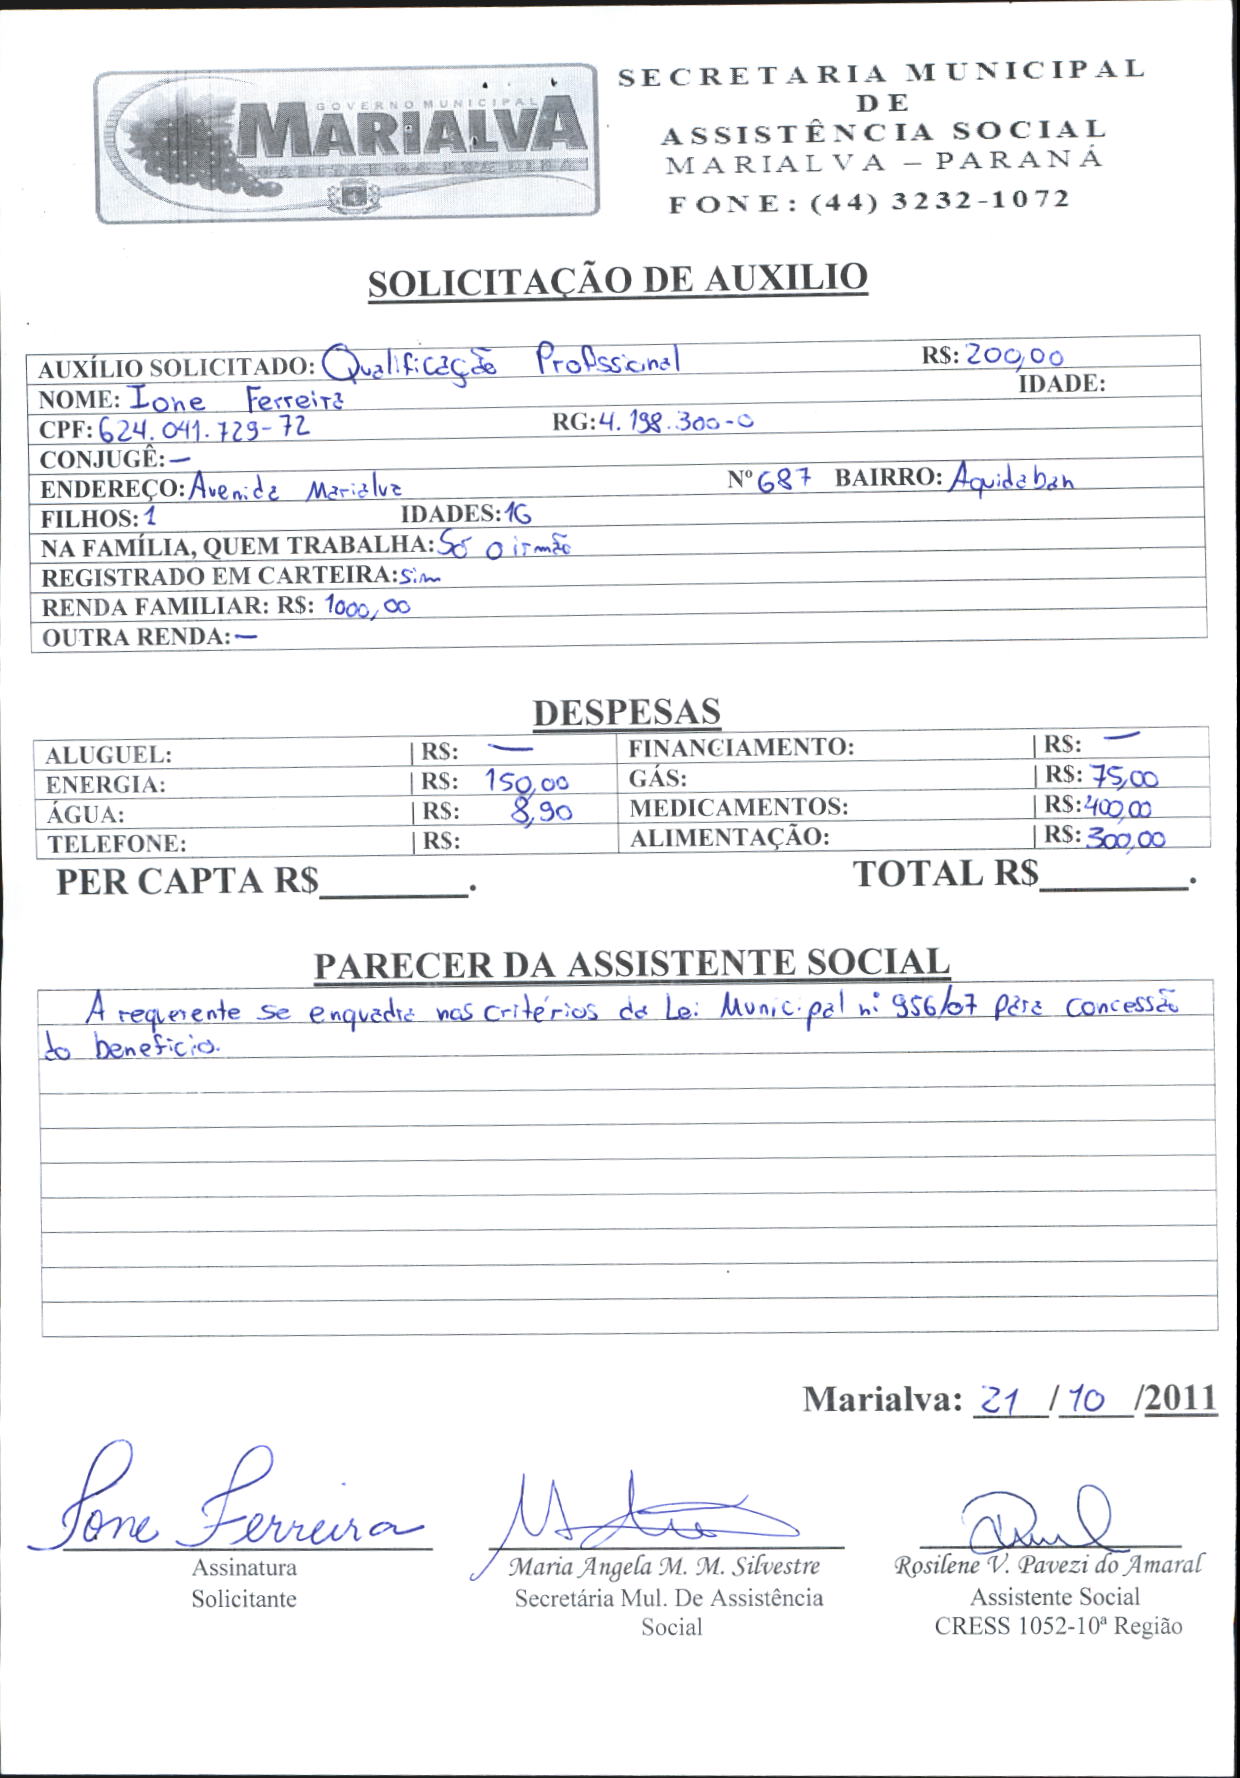 SECRETARIA MUNICIPAL
DE
ASSISTÊNCIA SOCIAL
MARIALVA – PARANÁ
FONE: (44) 3232-1072
GOVERNO MUNICIPAL
MARIALVA
CAPITAL DA UVA FINA
SOLICITAÇÃO DE AUXILIO
AUXÍLIO SOLICITADO: Qualificação Profissional R$: 200,00
NOME: Ione Ferreira IDADE:
CPF: 624.041.729-72 RG: 4.198.300-0
CONJUGÊ: —
ENDEREÇO: Avenida Marialva Nº 687 BAIRRO: Aquidaban
FILHOS: 1 IDADES: 16
NA FAMÍLIA, QUEM TRABALHA: Só o irmão
REGISTRADO EM CARTEIRA: sim
RENDA FAMILIAR: R$: 1000,00
OUTRA RENDA: —
DESPESAS
ALUGUEL: | R$: — FINANCIAMENTO: | R$: —
ENERGIA: | R$: 150,00 GÁS: | R$: 75,00
ÁGUA: | R$: 8,90 MEDICAMENTOS: | R$: 400,00
TELEFONE: | R$: ALIMENTAÇÃO: | R$: 300,00
PER CAPTA R$________. TOTAL R$________.
PARECER DA ASSISTENTE SOCIAL
A requerente se enquadra nos critérios da Lei Municipal nº 956/07 para concessão
do beneficio.
Marialva: 21 / 10 /2011
Ione Ferreira
Assinatura
Solicitante
Maria Angela M. M. Silvestre
Secretária Mul. De Assistência
Social
Rosilene V. Pavezi do Amaral
Assistente Social
CRESS 1052-10ª Região